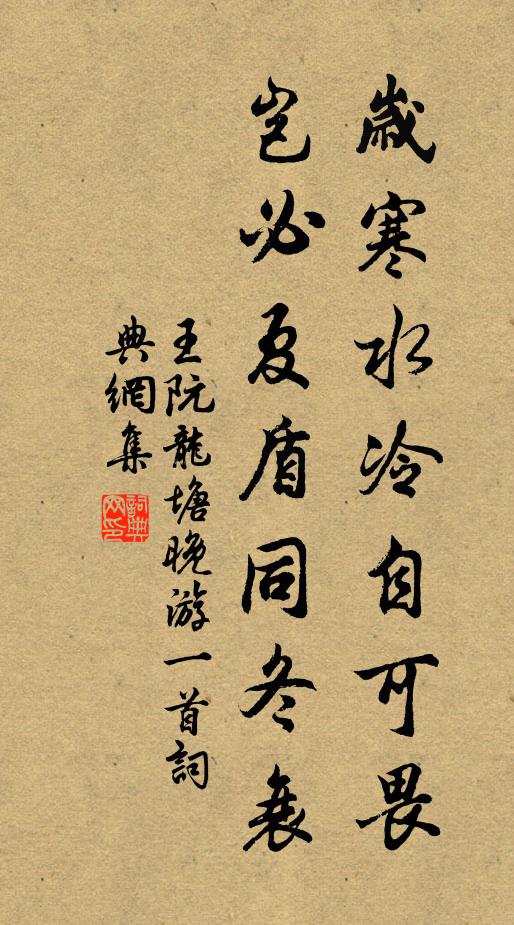 歲寒水冷自可畏
豈必夏盾同冬衰
王阮龍塘晚游一首詞
典網集
詞典網印